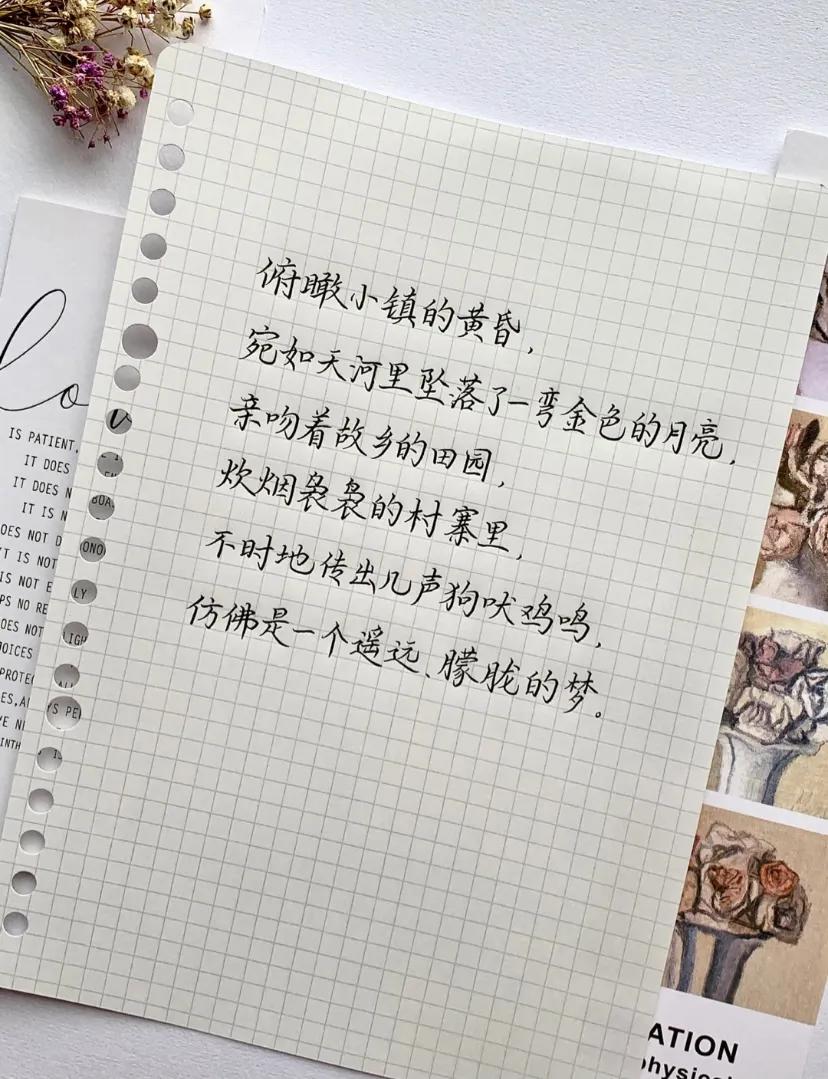 俯瞰小镇的黄昏，
宛如天河里坠落了一弯金色的月亮，
亲吻着故乡的田园，
炊烟袅袅的村寨里，
不时地传出几声狗吠鸡鸣，
仿佛是一个遥远、朦胧的梦。
lo
IS PATIENT,
IT DOES
IT DOES
IT IS
DOES NOT
IT IS NOT
IS NOT
NO RE
DOES NOT
ATION
physical